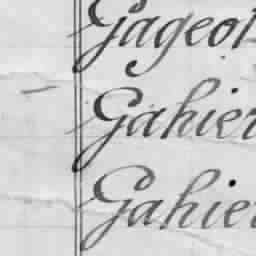 Gageot
Gahier
Gahier